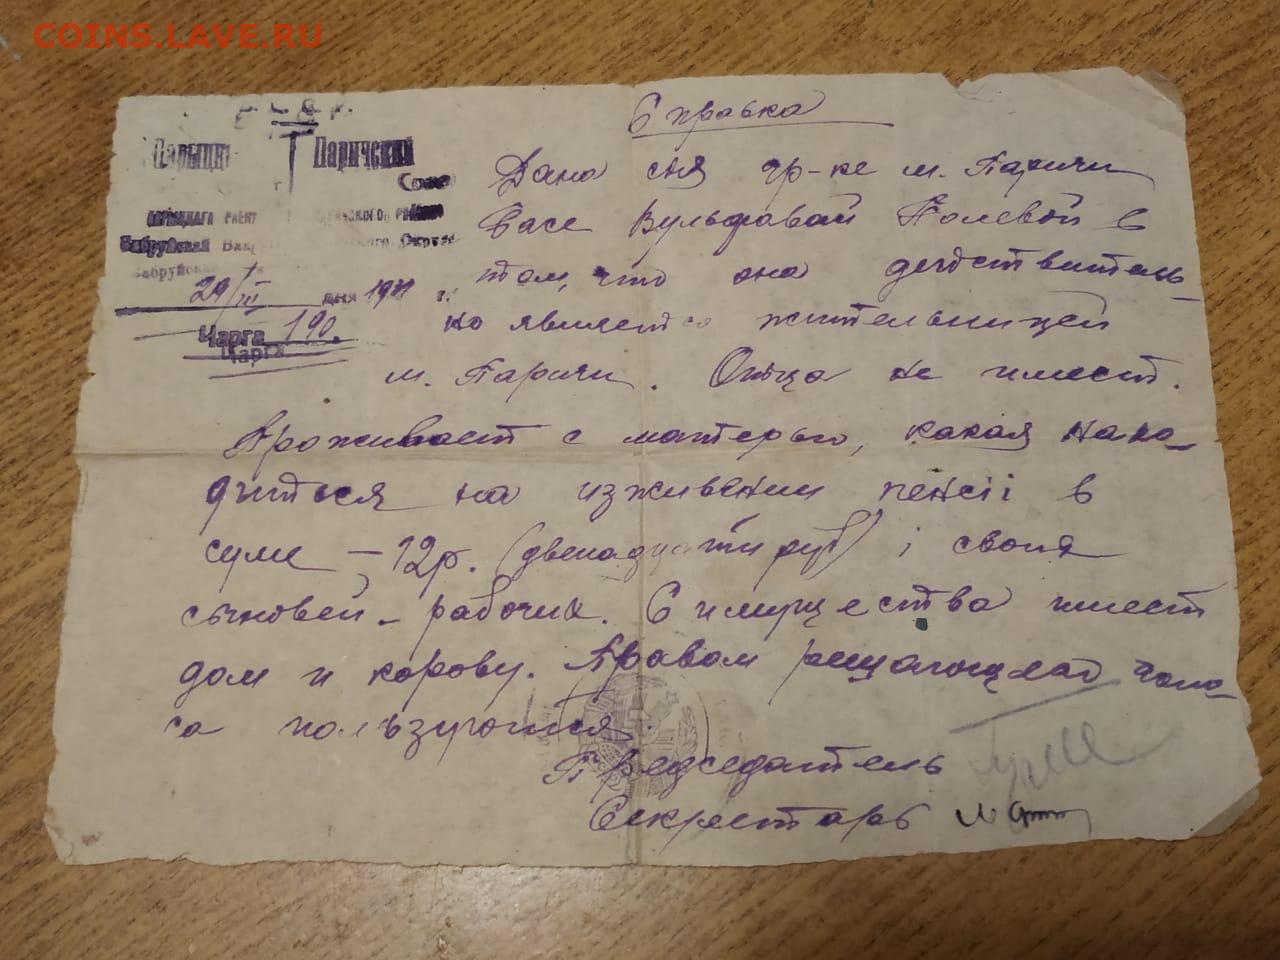 COINS.LAVE.RU
Справка
Паричский
Сове
29/III дня 1931 г.
Чарга 190.
Чарга
Дана сия гр-ке м. Паричи
Басе Вульфавай Полевой в
том, что она действитель-
но является жительницей
м. Паричи. Отца не имеет.
Проживает с матерью, какая нахо-
диться на изживении пенсіі в
суме – 12р. (двенадцати руб) і своих
сыновей - рабочих. С имущества имеет
дом и корову. Правом рещающего голо-
са пользуютися
Председатель
Секретарь